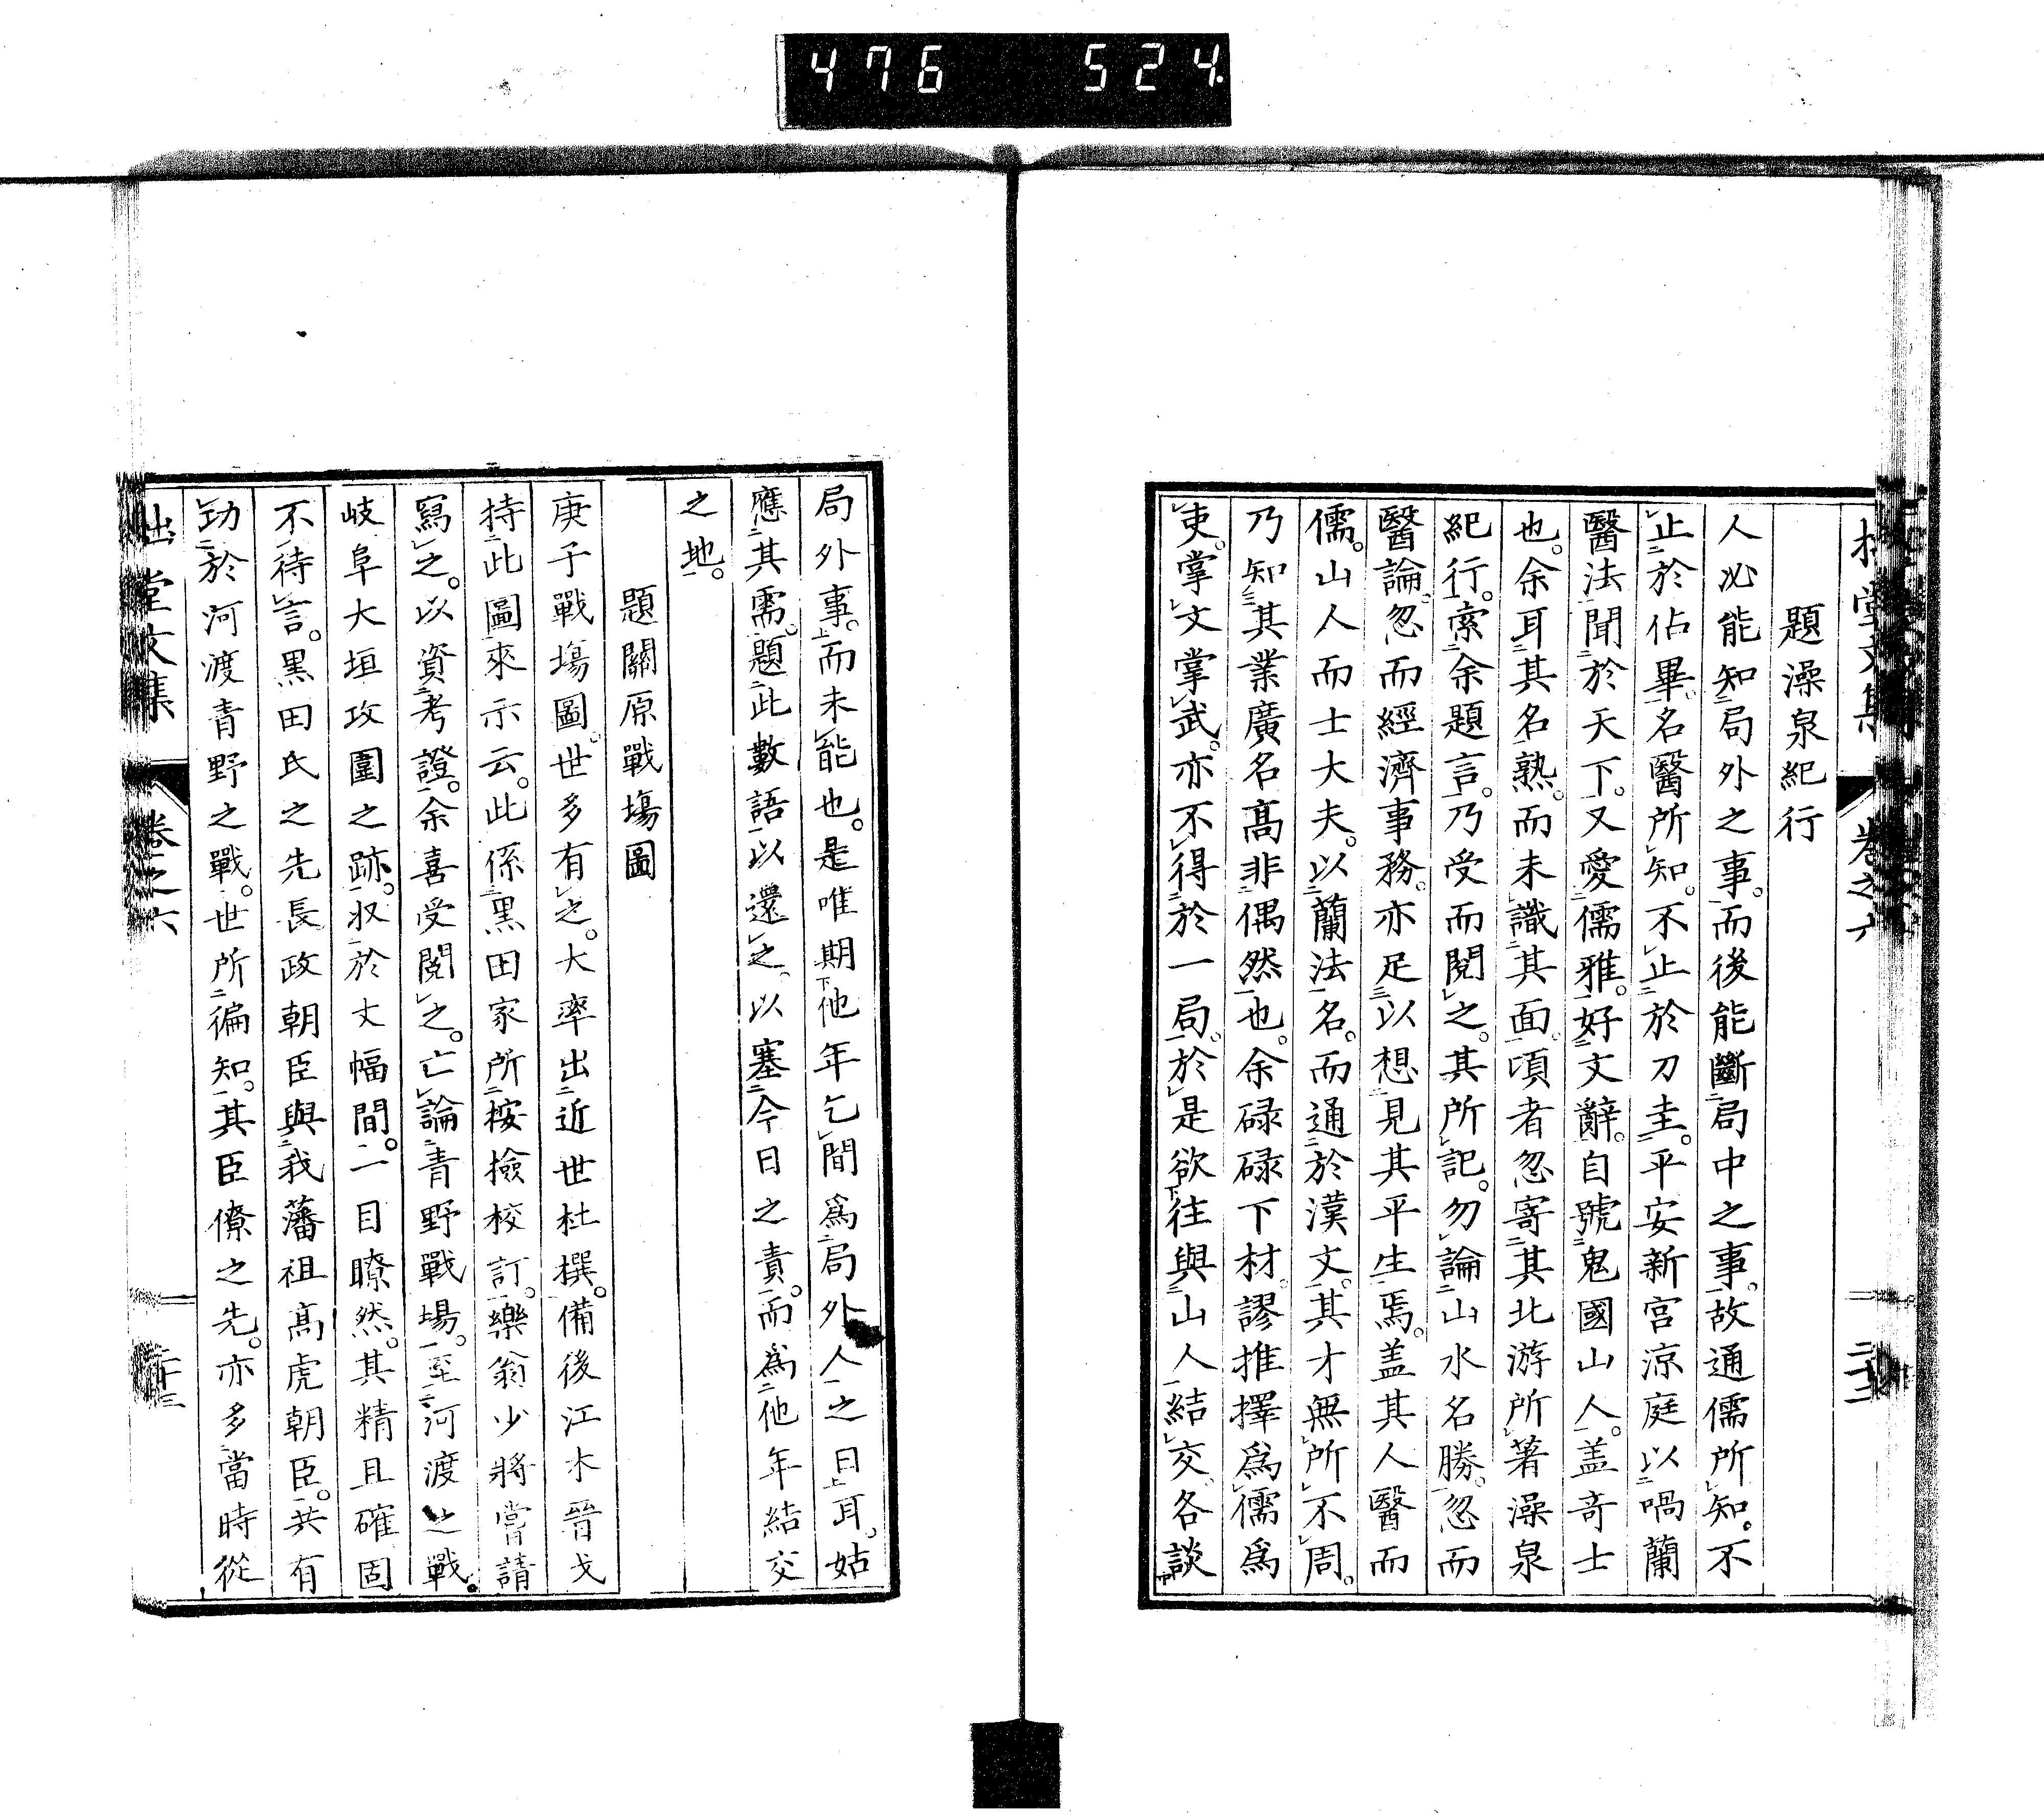 476 524
題澡泉紀行
人必能知局外之事。而後能斷局中之事。故通儒所知。不
止於佔畢。名醫所知。不止於刀圭。平安新宮涼庭以喎蘭
醫法聞於天下。又愛儒雅。好文辭。自號鬼國山人。盖奇士
也。余耳其名熟。而未識其面。頃者忽寄其北游所著澡泉
紀行。索余題言。乃受而閱之。其所記。勿論山水名勝。忽而
醫論。忽而經濟事務。亦足以想見其平生焉。盖其人醫而
儒。山人而士大夫。以蘭法名。而通於漢文。其才無所不周。
乃知其業廣名高非偶然也。余碌碌下材。謬推擇爲儒爲
吏。掌文掌武。亦不得於一局。於是欲往與山人結交。各談
局外事。而未能也。是唯期他年乞間爲局外人之日耳。姑
應其需。題此數語以還之。以塞今日之責。而爲他年結交
之地。
題關原戰場圖
庚子戰場圖。世多有之。大率出近世杜撰。備後江木晉戈
持此圖來示云。此係黑田家所按撿校訂。樂翁少將嘗請
寫之。以資考證。余喜受閱之。亡論青野戰場。至河渡之戰。
岐阜大垣攻圍之跡。収於丈幅間。一目瞭然。其精且確固
不待言。黑田氏之先長政朝臣與我藩祖高虎朝臣。共有
功於河渡青野之戰。世所徧知。其臣僚之先。亦多當時從
堂文集 卷之六